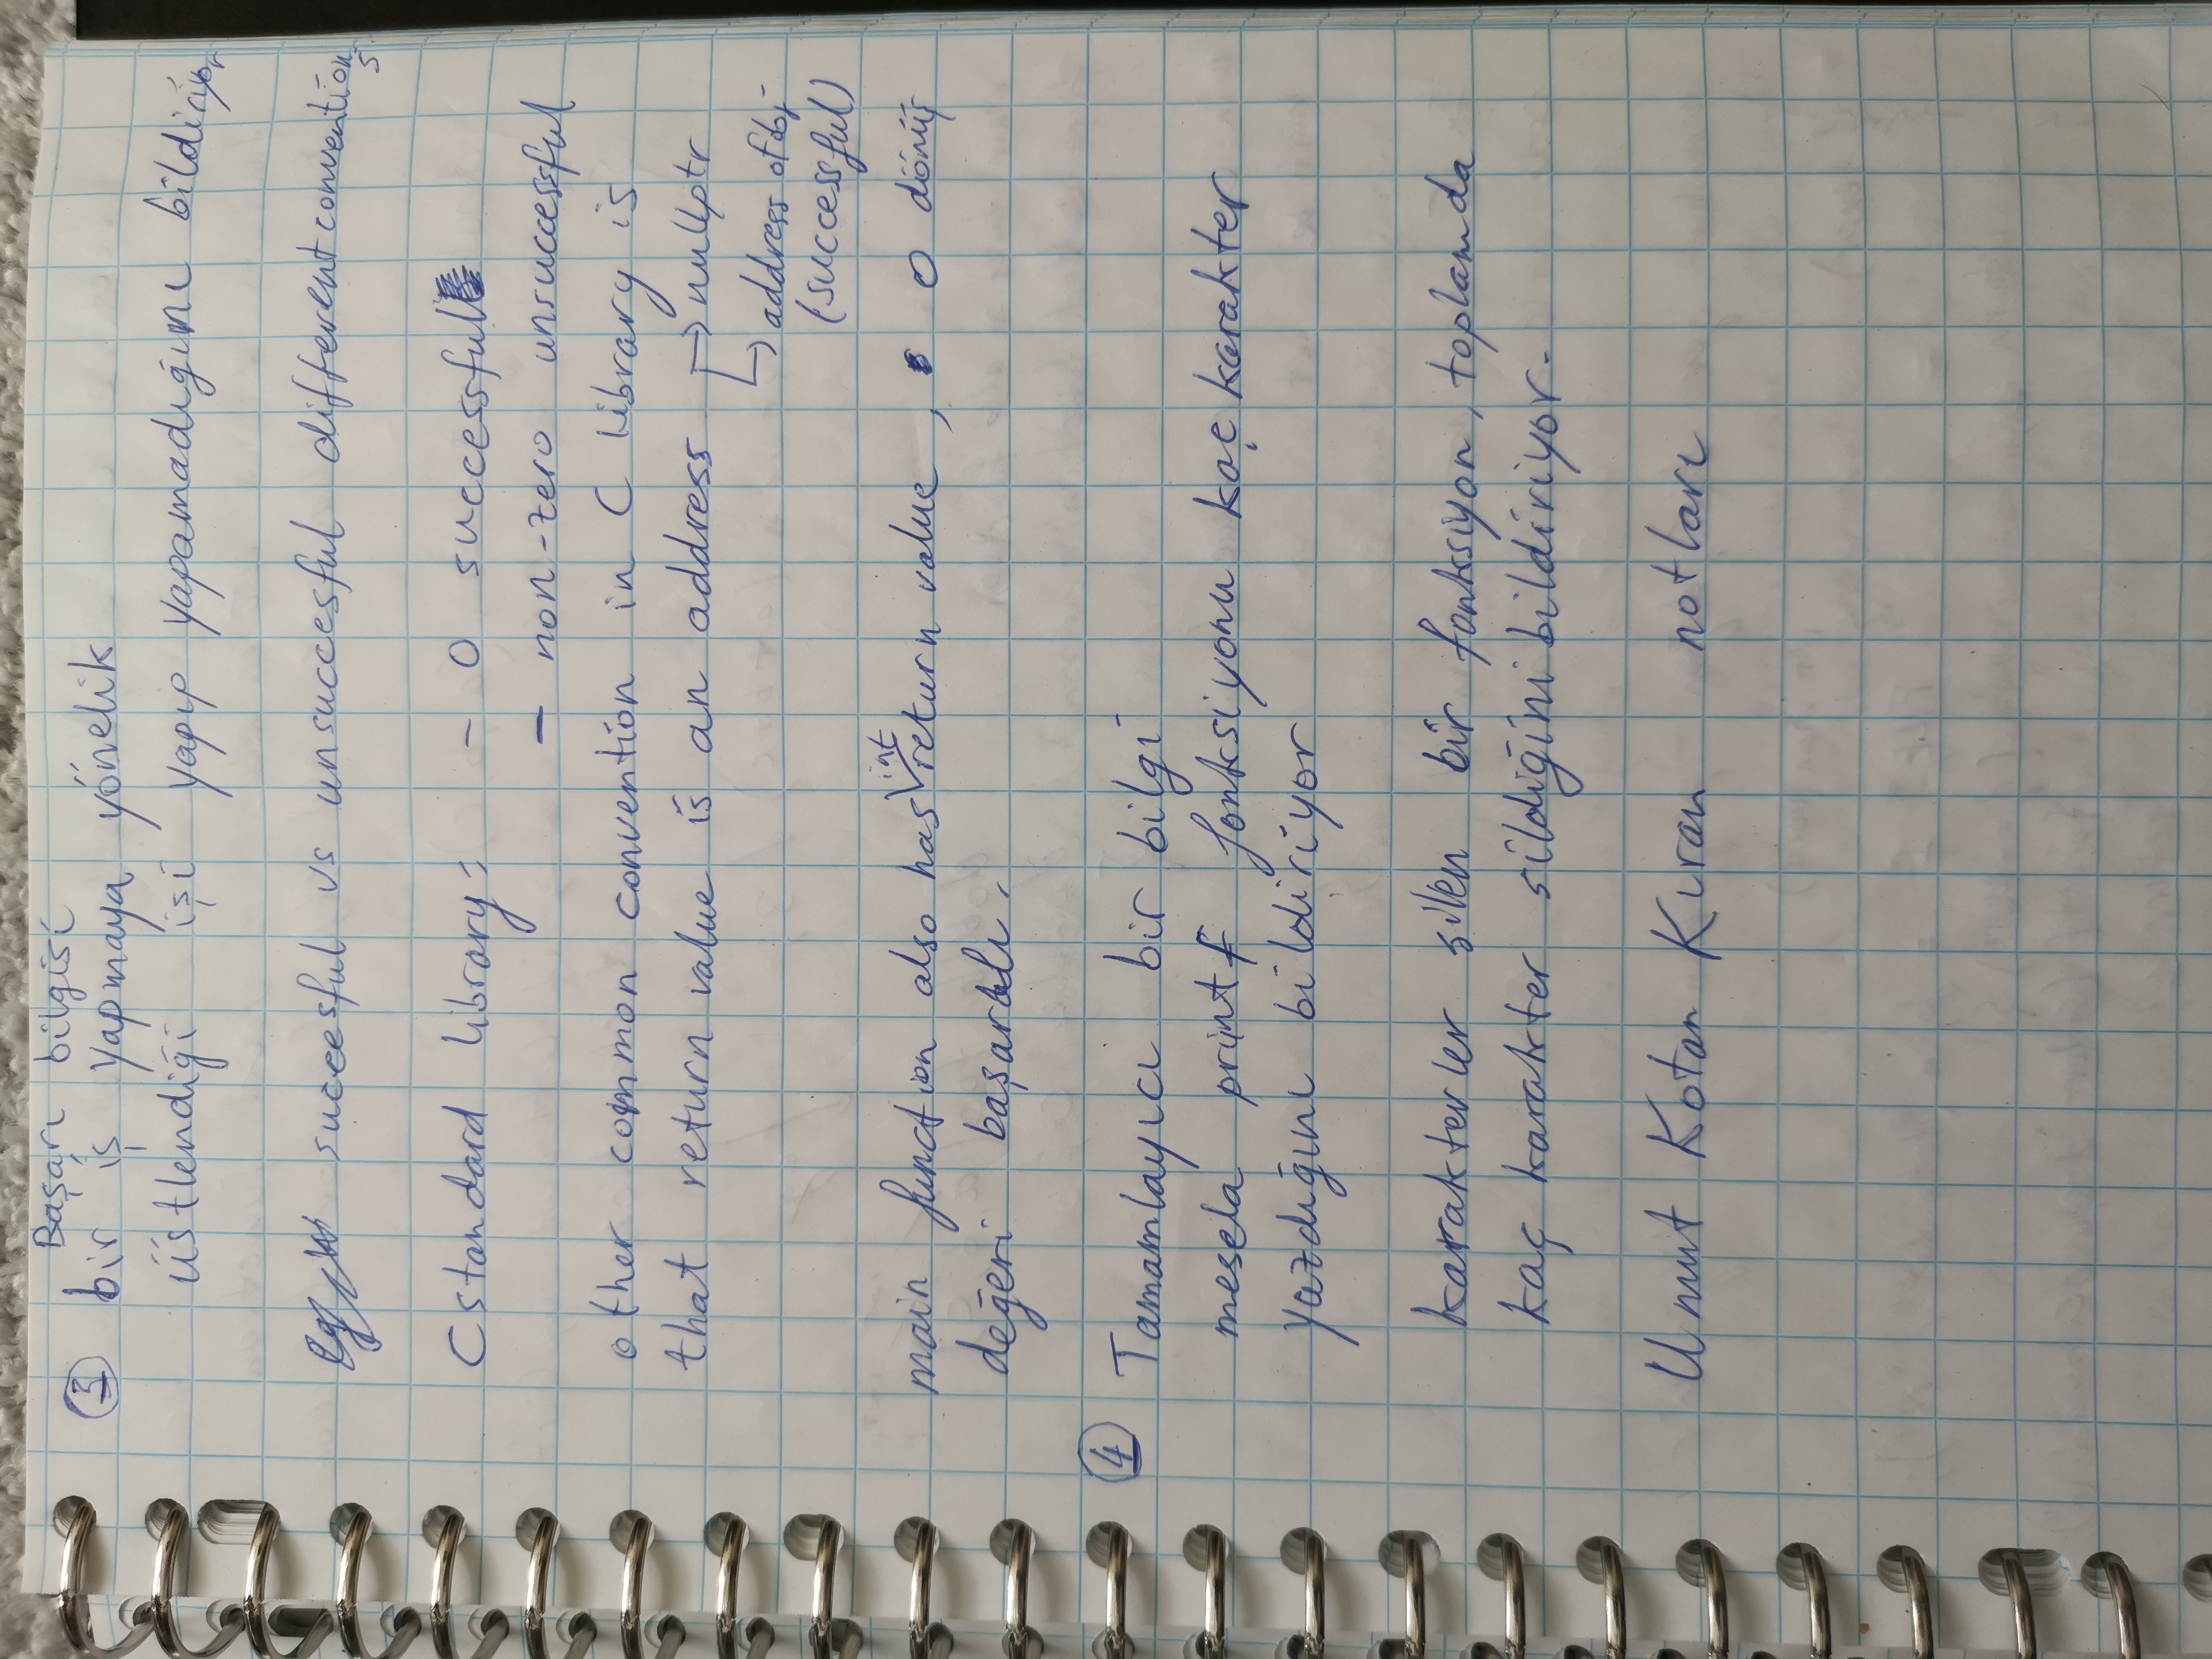 Başarı bilgisi
3 bir iş yapmaya yönelik
üstlendiği işi yapıp yapamadığını bildiriyor
succesful vs unsuccesful different conventions
C standard library: - 0 successful
- non-zero unsuccessful
other common convention in C library is
that return value is an address → nullptr
→ address of obj
(successful)
int
main function also has return value, 0 dönüş
değeri başarılı.
4 Tamamlayıcı bir bilgi
mesela printf fonksiyonu kaç karakter
yazdığını bildiriyor
karakterler silen bir fonksiyon, toplamda
kaç karakter sildiğini bildiriyor.
Umut Kotan Kıran notları